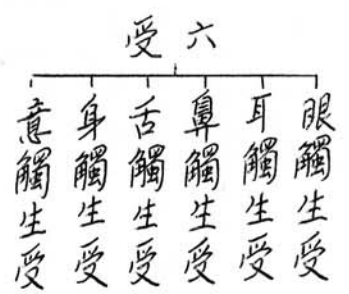 六受
眼觸生受
耳觸生受
鼻觸生受
舌觸生受
身觸生受
意觸生受